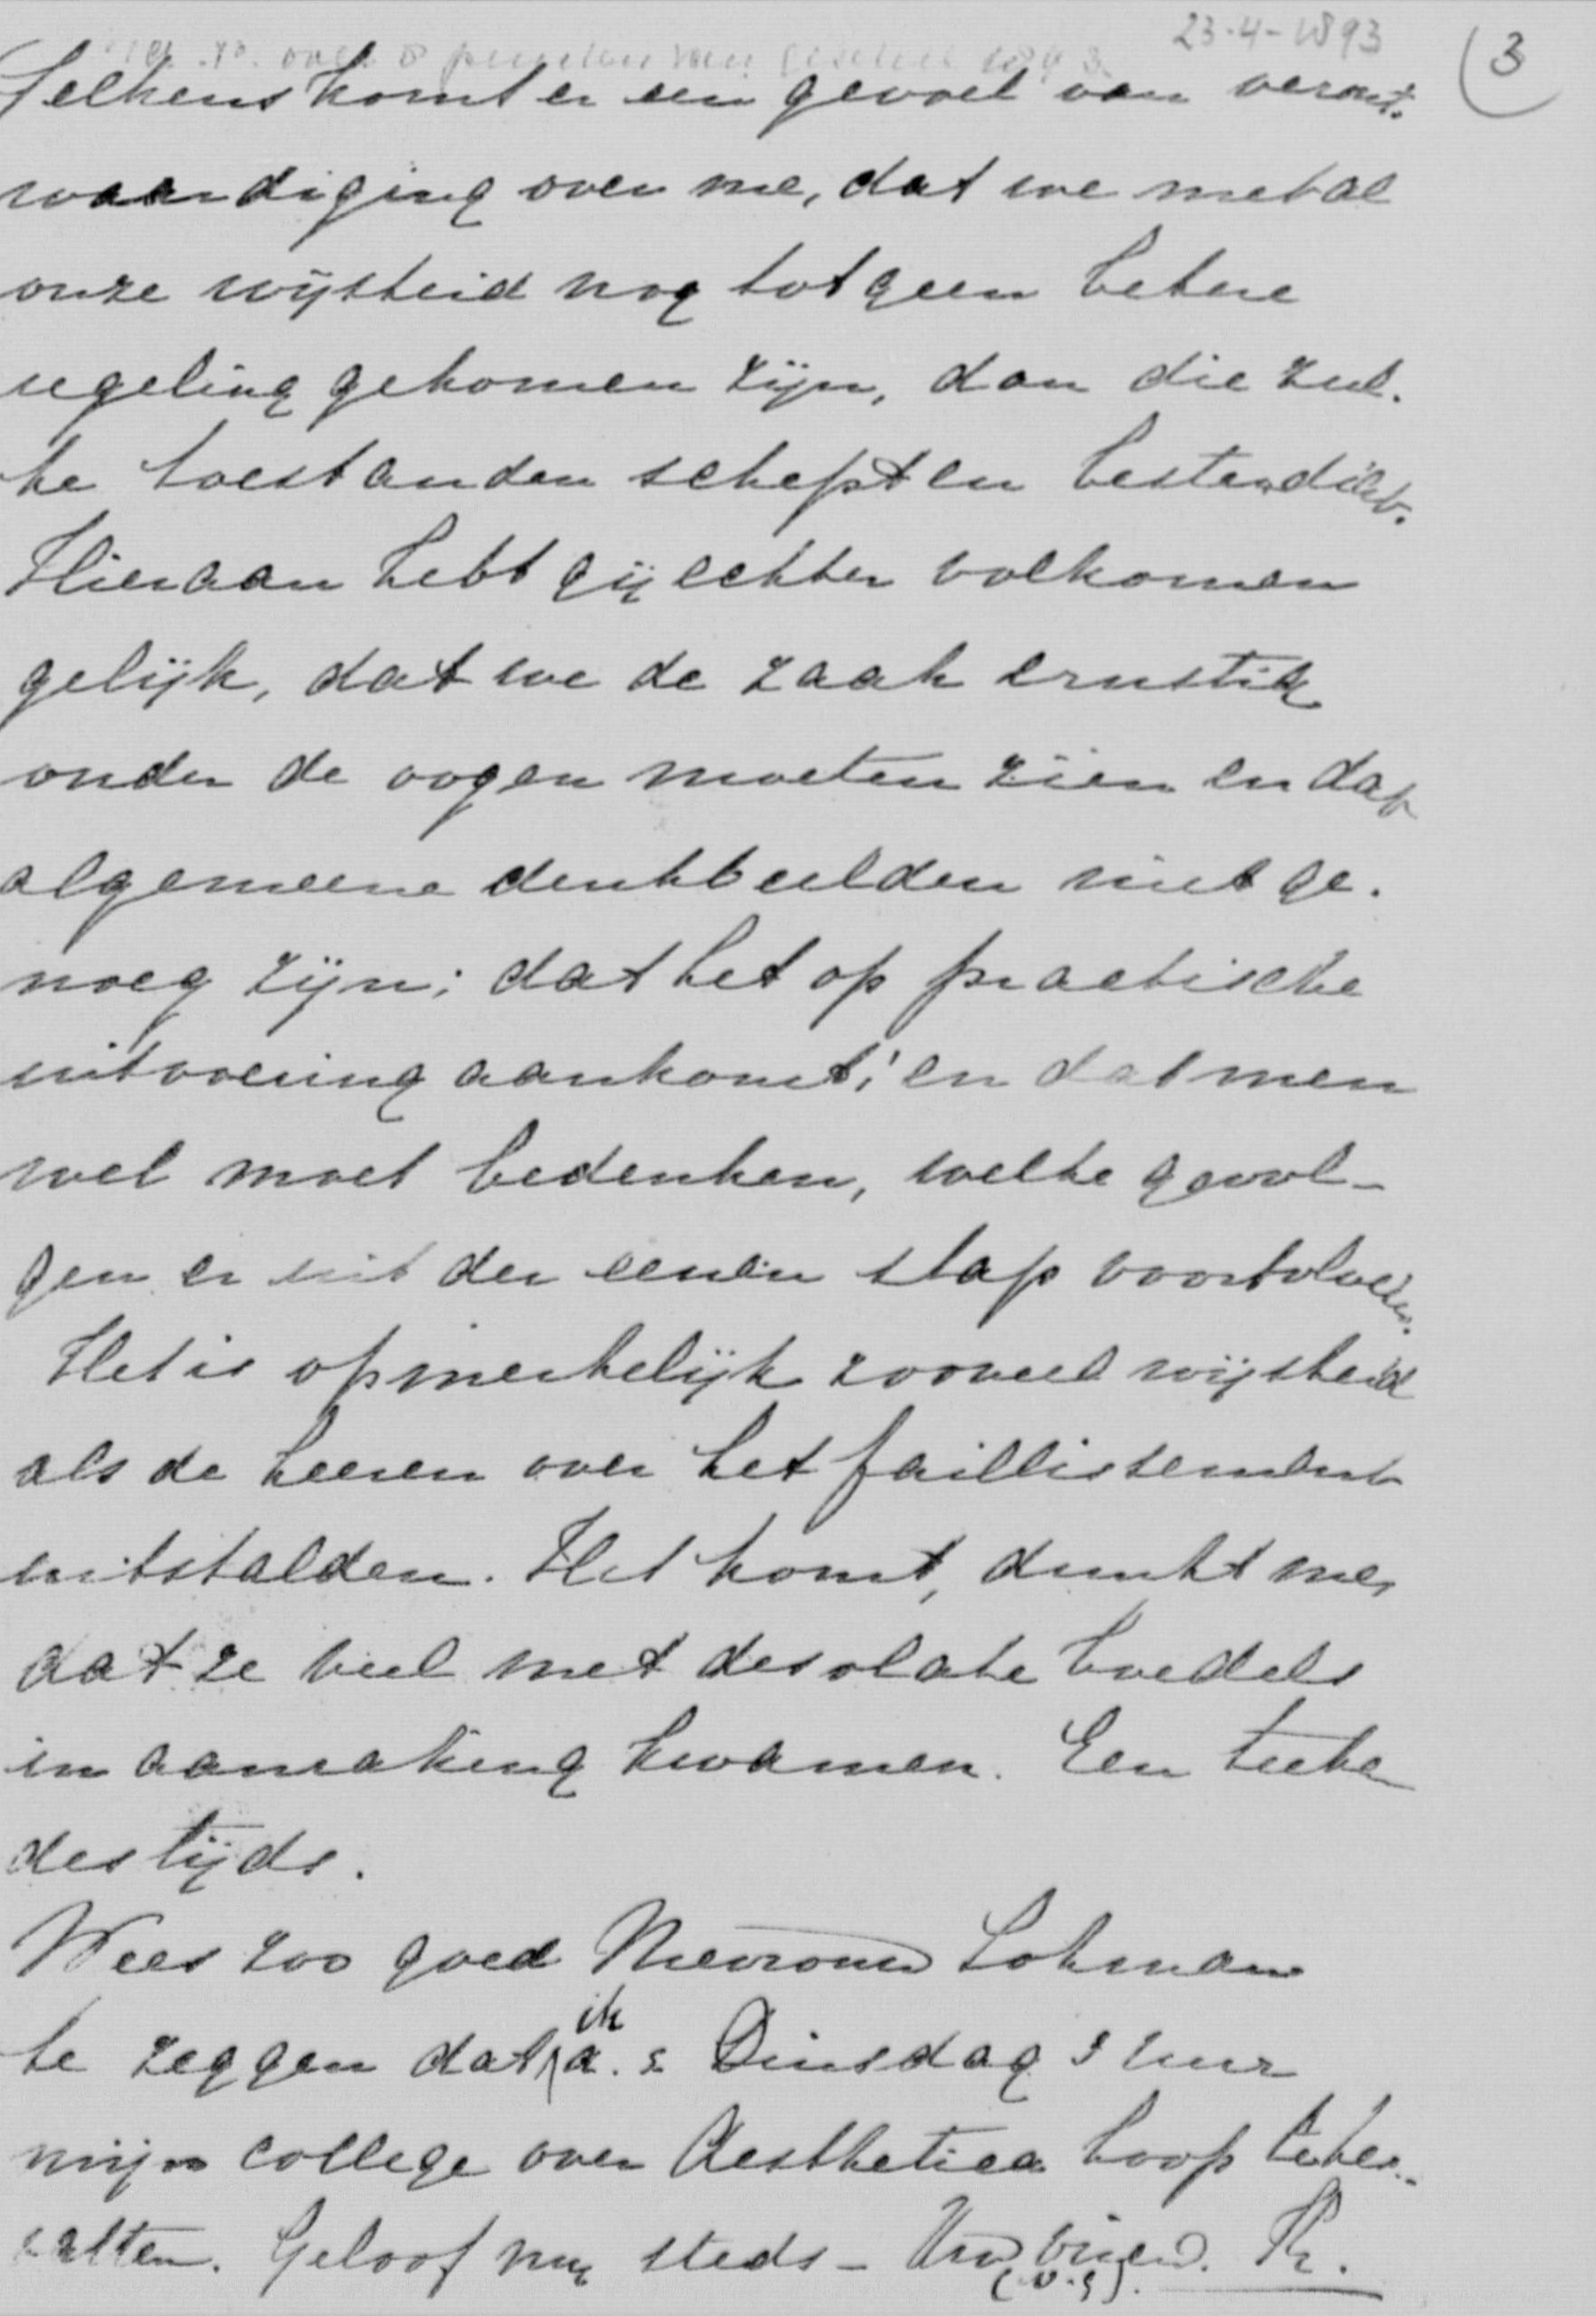 23-4-1893
3
Telkens komt er een gevoel van veront.
waardiging over me, dat we met al
onze wijsheid nog tot geen betere
regeling gekomen zijn, dan die zul.
ke toestanden schept en bestendigt.
Hieraan hebt gij echter volkomen
gelijk, dat we de zaak ernstig
onder de oogen moeten zien en dat
algemeene denkbeelden niet ge.
noeg zijn; dat het op practische
uitvoering aankomt; en dat men
wel moet bedenken, welke gevol-
gen er uit den eenen stap voortvloeien.
Het is opmerkelijk zooveel wijsheid
als de heeren over het faillissement
uitstalden. Het komt, dunkt me,
dat ze veel met desolate boedels
in aanraking kwamen. Een teeken
des tijds.
Wees zoo goed Mevrouw Lohman
te zeggen dat ik a. s. Dinsdag 3 uur
mijn college over Aesthetica hoop te her-
vatten. Geloof mij steds - Uw vriend.
(w.g).